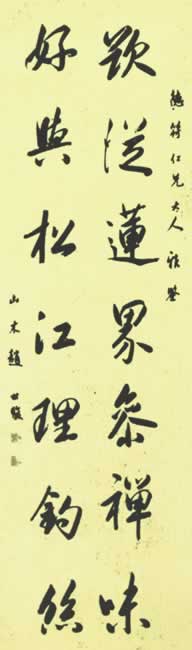 符仁兄大人 雅鑒
從蓮界參禪味
好與松江理釣絲
山木趙世駿